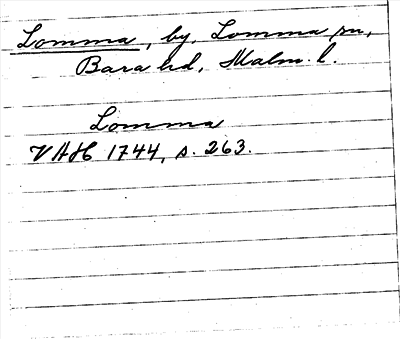 Lomma, by, Lomma sn,
Bara hd, Malm. l.
Lomma
VAH 1744, s. 263.